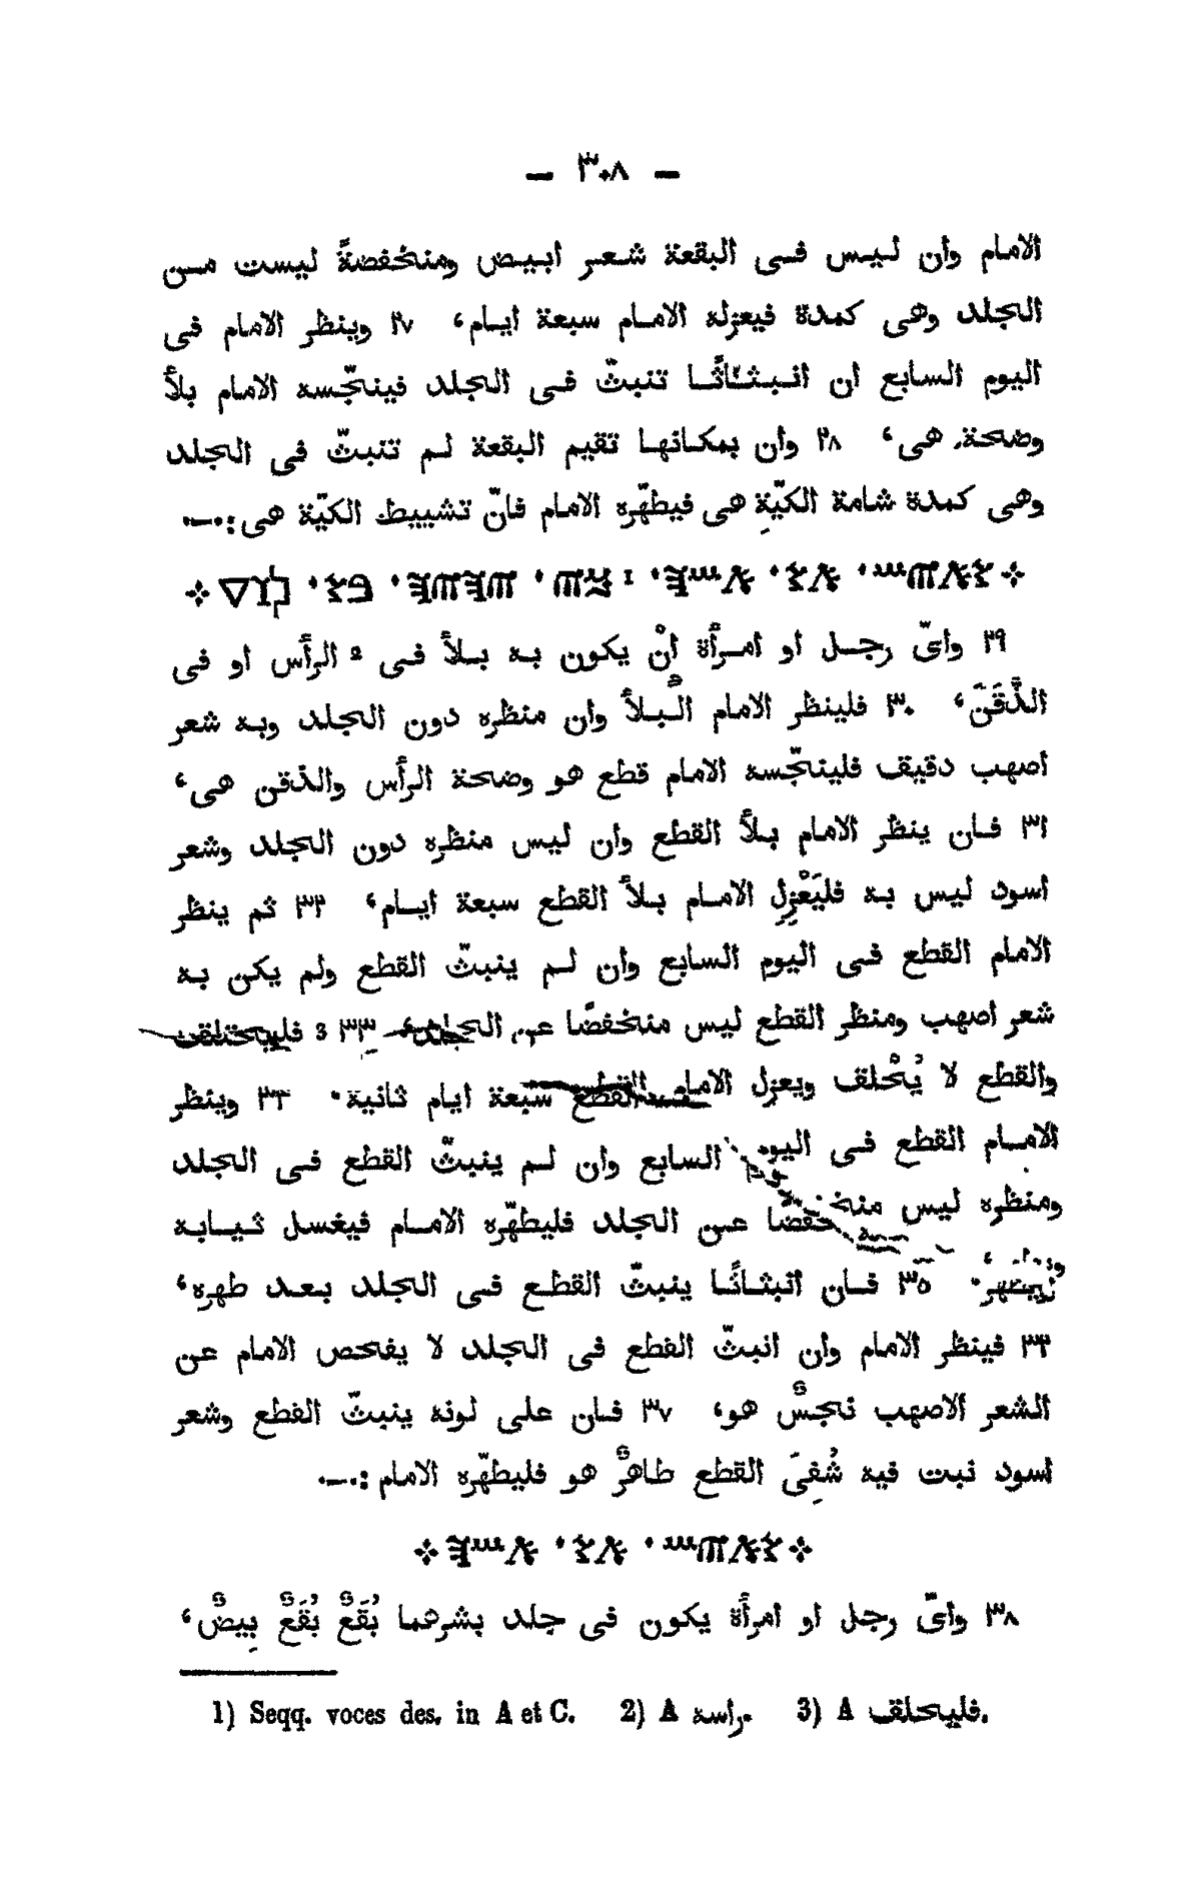 — ٣٠٨ —
الامام وان ليس فى البقعة شعر ابيض ومنخفضةً ليست من
الجلد وهى كمدة فيعزله الامام سبعة ايام، ٢٧ وينظر الامام فى
اليوم السابع ان انبثاثًا تنبثّ فى الجلد فينجّسه الامام بلأ
وضحة هى، ٢٨ وان بمكانها تقيم البقعة لم تنبثّ فى الجلد
وهى كمدة شامة الكيّةِ هى فيطهّره الامام فانّ تشييط الكيّة هى:·—·
٢٩ واىّ رجل او امرأة انْ يكون به بلأ فى 2 الرأس او فى
الذَّقَنَ، ٣٠ فلينظر الامام البلأ وان منظره دون الجلد وبه شعر
اصهب دقيق فلينجّسه الامام قطع هو وضحة الرأس والذقن هى،
٣١ فان ينظر الامام بلأ القطع وان ليس منظره دون الجلد وشعر
اسود ليس به فليَعْزِلِ الامام بلأ القطع سبعة ايام، ٣٢ ثم ينظر
الامام القطع فى اليوم السابع وان لم ينبثّ القطع ولم يكن به
شعر اصهب ومنظر القطع ليس منخفضًا عن الجلد، ٣٣ 3
والقطع لا يُحْلق ويعزل الامام القطع سبعة ايام ثانية· ٣٤ وينظر
الامام القطع فى اليوم السابع وان لم ينبثّ القطع فى الجلد
ومنظره ليس منخفضًا عن الجلد فليطهّره الامام فيغسل ثيابه
٣٥ فان انبثاثًا ينبثّ القطع فى الجلد بعد طهره،
٣٦ فينظر الامام وان انبثّ القطع فى الجلد لا يفحص الامام عن
الشعر الاصهب نجسٌ هو، ٣٧ فان على لونه ينبثّ القطع وشعر
اسود نبت فيه شُفِىَ القطع طاهرٌ هو فليطهّره الامام:·—·
٣٨ واىّ رجل او امرأة يكون فى جلد بشرهما بُقَعٌ بُقَعٌ بِيضٌ،
1) Seqq. voces des. in A et C. 2) A راسه. 3) A فليحلق.